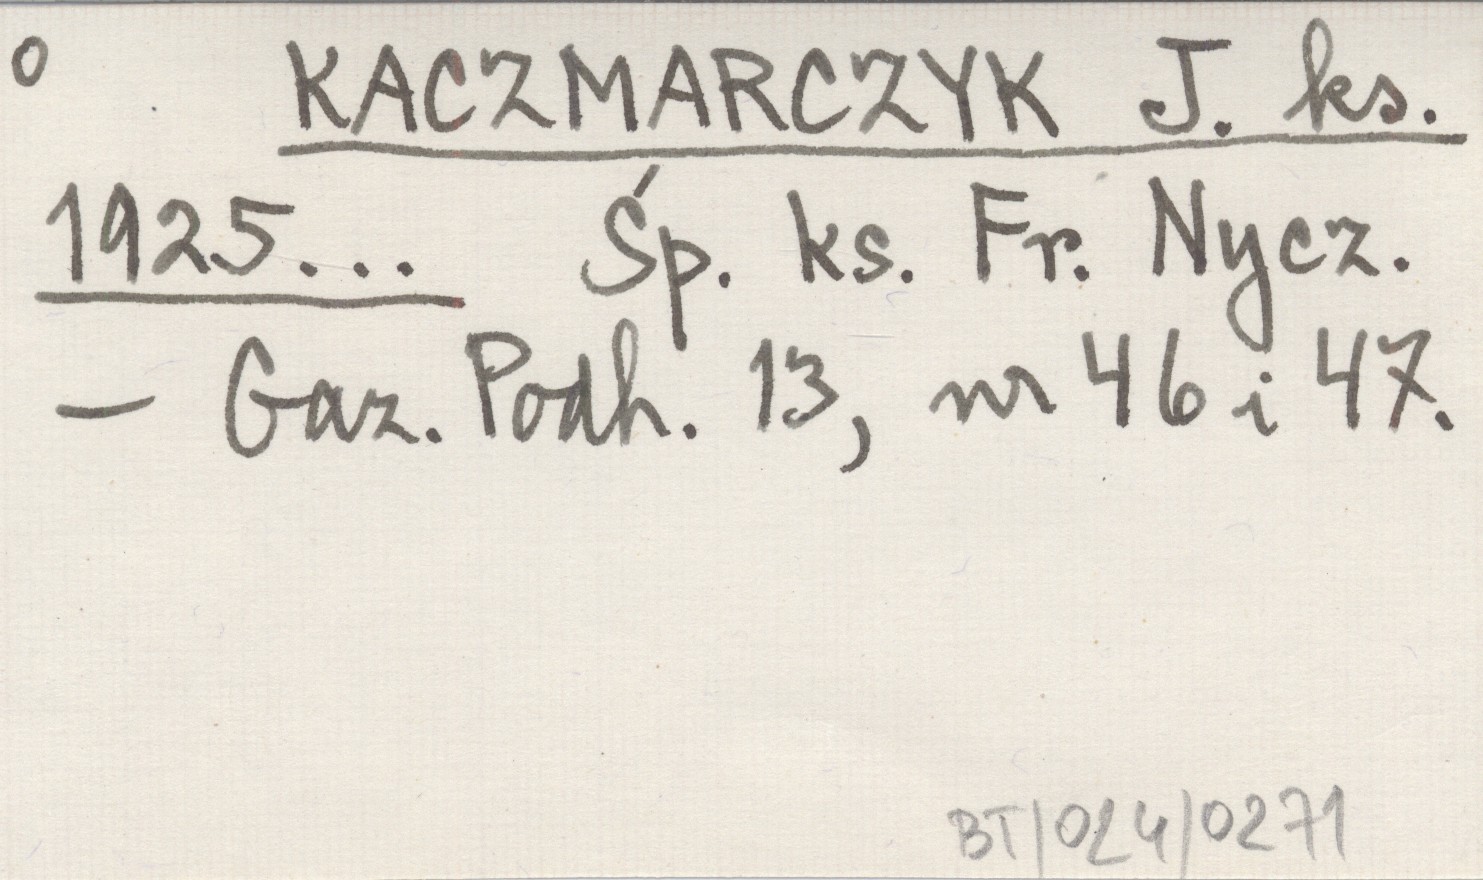 o KACZMARCZYK J. ks.
1925... Śp. ks. Fr. Nycz.
— Gaz. Podh. 13, nr 46 i 47.
BT/024/0271